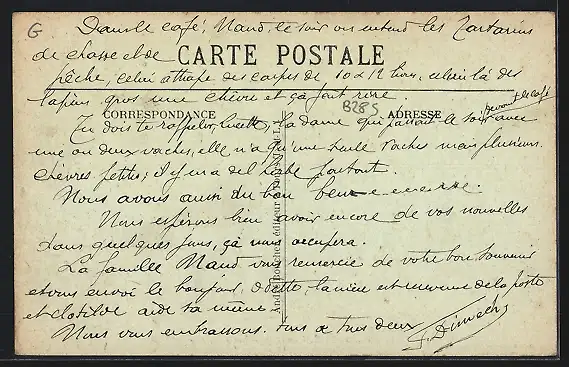 G
Dans le café, Naud, le soir on entend les Tartarins
de chasse et de CARTE POSTALE
pêche, celui attrape des carpes de 10 à 12 livres, celui là des
lapins gros une chèvre et ça fait rire
B285
CORRESPONDANCE ADRESSE
devant le café
Tu dois te rappeler, la dame qui passait le soir avec
une ou deux vaches, elle n'a qu'une seule vache mais plusieurs
chèvres petites, il y en a de l'herbe partout.
Nous avons aussi du bon beurre
Nous espérons bien avoir encore de vos nouvelles
dans quelques jours, ça nous occupera.
La famille Naud vous remercie de votre bon souvenir
et vous envoi le bonjour, Odette, la mère est revenue de la poste
et Clotilde aide sa mère
Nous vous embrassons tous de tous deux